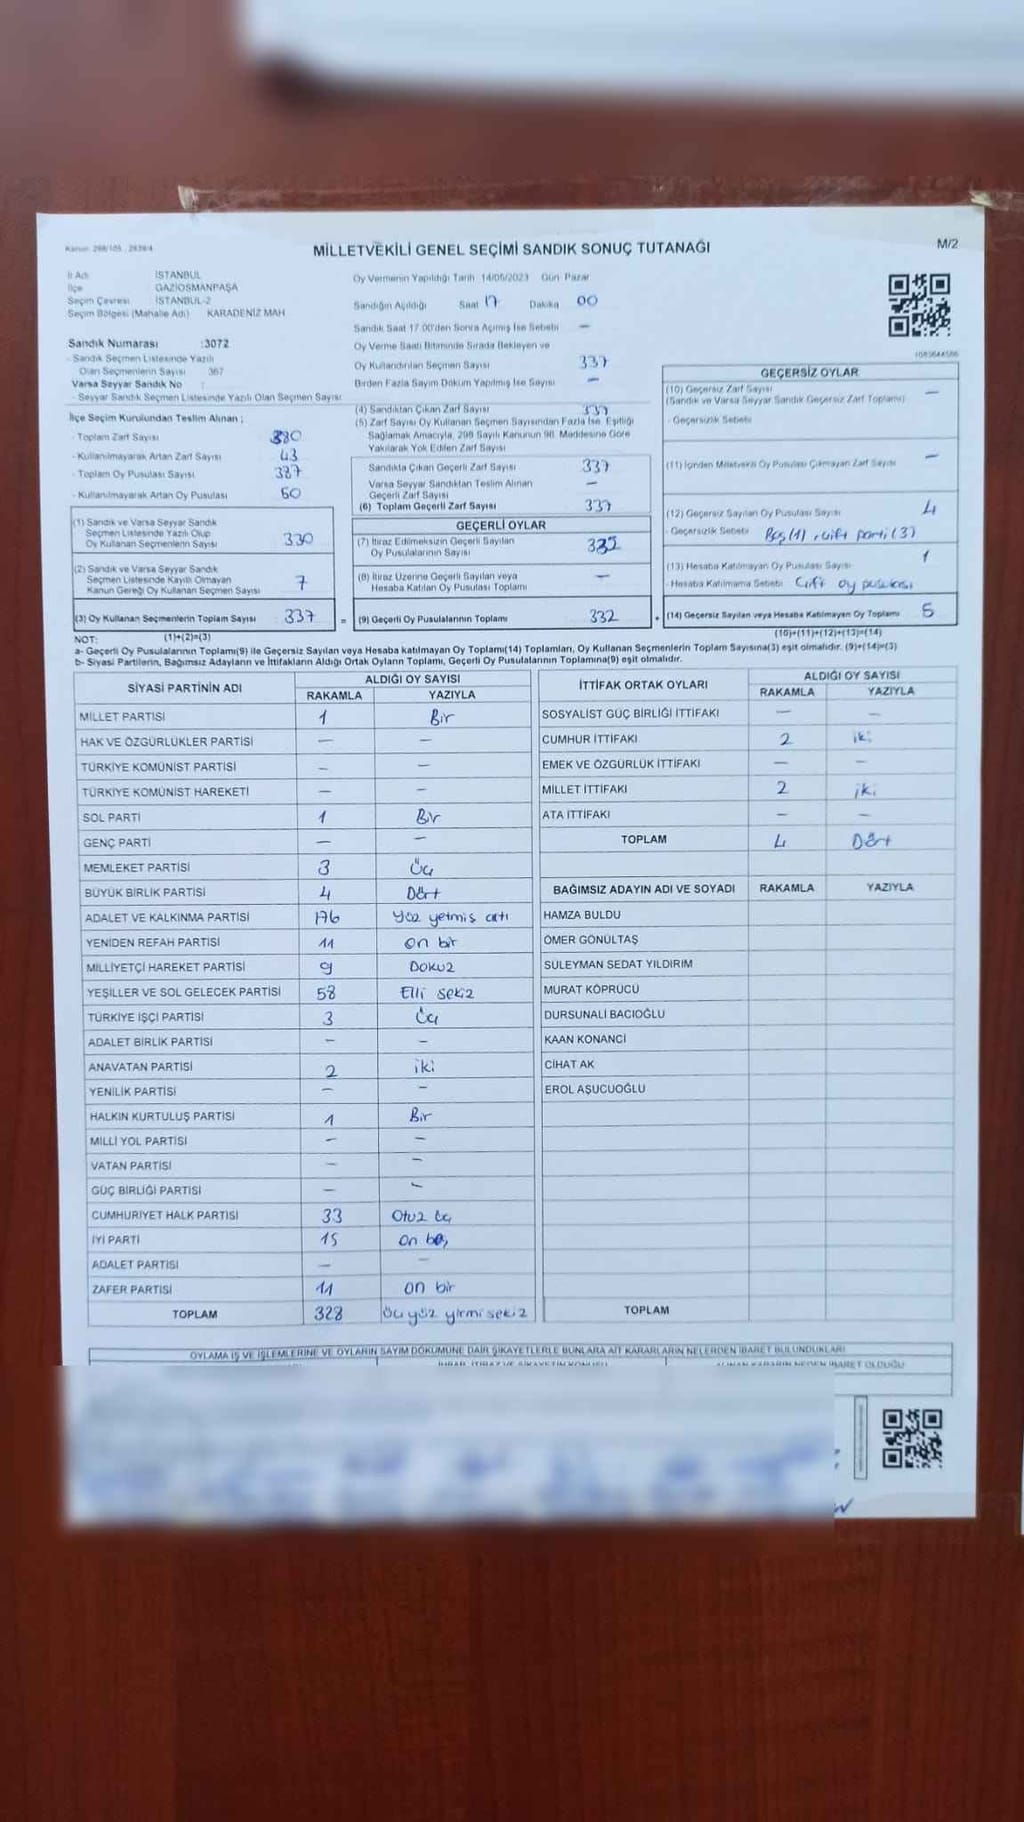 MİLLETVEKİLİ GENEL SEÇİMİ SANDIK SONUÇ TUTANAĞI
M/2
İl Adı İSTANBUL
İlçe GAZİOSMANPAŞA
Seçim Çevresi İSTANBUL-2
Seçim Bölgesi (Mahalle Adı) KARADENİZ MAH
Sandık Numarası :3072
- Sandık Seçmen Listesinde Yazılı
Olan Seçmenlerin Sayısı 367
Varsa Seyyar Sandık No :
- Seyyar Sandık Seçmen Listesinde Yazılı Olan Seçmen Sayısı
İlçe Seçim Kurulundan Teslim Alınan ;
- Toplam Zarf Sayısı 380
- Kullanılmayarak Artan Zarf Sayısı 43
- Toplam Oy Pusulası Sayısı 387
- Kullanılmayarak Artan Oy Pusulası 50
(1) Sandık ve Varsa Seyyar Sandık
Seçmen Listesinde Yazılı Olup
Oy Kullanan Seçmenlerin Sayısı 330
(2) Sandık ve Varsa Seyyar Sandık
Seçmen Listesinde Kayıtlı Olmayan
Kanun Gereği Oy Kullanan Seçmen Sayısı 7
(3) Oy Kullanan Seçmenlerin Toplam Sayısı 337 =
Oy Vermenin Yapıldığı Tarih 14/05/2023 Gün Pazar
Sandığın Açıldığı Saat 17 Dakika 00
Sandık Saat 17.00'den Sonra Açmış İse Sebebi –
Oy Verme Saati Bitiminde Sırada Bekleyen ve
Oy Kullandırılan Seçmen Sayısı 337
Birden Fazla Sayım Döküm Yapılmış İse Sayısı –
(4) Sandıktan Çıkan Zarf Sayısı 337
(5) Zarf Sayısı Oy Kullanan Seçmen Sayısından Fazla İse, Eşitliği
Sağlamak Amacıyla, 298 Sayılı Kanunun 98. Maddesine Göre
Yakılarak Yok Edilen Zarf Sayısı
Sandıkta Çıkan Geçerli Zarf Sayısı 337
Varsa Seyyar Sandıktan Teslim Alınan
Geçerli Zarf Sayısı –
(6) Toplam Geçerli Zarf Sayısı 337
GEÇERLİ OYLAR
(7) İtiraz Edilmeksizin Geçerli Sayılan
Oy Pusulalarının Sayısı 332
(8) İtiraz Üzerine Geçerli Sayılan veya
Hesaba Katılan Oy Pusulası Toplamı –
(9) Geçerli Oy Pusulalarının Toplamı 332 +
GEÇERSİZ OYLAR
(10) Geçersiz Zarf Sayısı
(Sandık ve Varsa Seyyar Sandık Geçersiz Zarf Toplamı) –
- Geçersizlik Sebebi
(11) İçinden Milletvekili Oy Pusulası Çıkmayan Zarf Sayısı –
(12) Geçersiz Sayılan Oy Pusulası Sayısı 4
- Geçersizlik Sebebi Boş (1), çift parti (3)
(13) Hesaba Katılmayan Oy Pusulası Sayısı 1
- Hesaba Katılmama Sebebi Çift oy pusulası
(14) Geçersiz Sayılan veya Hesaba Katılmayan Oy Toplamı 5
NOT: (1)+(2)=(3)
(10)+(11)+(12)+(13)=(14)
a- Geçerli Oy Pusulalarının Toplamı(9) ile Geçersiz Sayılan veya Hesaba katılmayan Oy Toplamı(14) Toplamları, Oy Kullanan Seçmenlerin Toplam Sayısına(3) eşit olmalıdır. (9)+(14)=(3)
b- Siyasi Partilerin, Bağımsız Adayların ve İttifakların Aldığı Ortak Oyların Toplamı, Geçerli Oy Pusulalarının Toplamına(9) eşit olmalıdır.
SİYASİ PARTİNİN ADI ALDIĞI OY SAYISI
RAKAMLA YAZIYLA
MİLLET PARTİSİ 1 Bir
HAK VE ÖZGÜRLÜKLER PARTİSİ – –
TÜRKİYE KOMÜNİST PARTİSİ – –
TÜRKİYE KOMÜNİST HAREKETİ – –
SOL PARTİ 1 Bir
GENÇ PARTİ – –
MEMLEKET PARTİSİ 3 Üç
BÜYÜK BİRLİK PARTİSİ 4 Dört
ADALET VE KALKINMA PARTİSİ 176 Yüz yetmiş altı
YENİDEN REFAH PARTİSİ 11 on bir
MİLLİYETÇİ HAREKET PARTİSİ 9 Dokuz
YEŞİLLER VE SOL GELECEK PARTİSİ 58 Elli sekiz
TÜRKİYE İŞÇİ PARTİSİ 3 Üç
ADALET BİRLİK PARTİSİ – –
ANAVATAN PARTİSİ 2 iki
YENİLİK PARTİSİ – –
HALKIN KURTULUŞ PARTİSİ 1 Bir
MİLLİ YOL PARTİSİ – –
VATAN PARTİSİ – –
GÜÇ BİRLİĞİ PARTİSİ – –
CUMHURİYET HALK PARTİSİ 33 Otuz üç
İYİ PARTİ 15 on beş
ADALET PARTİSİ – –
ZAFER PARTİSİ 11 on bir
TOPLAM 328 Üç yüz yirmi sekiz
İTTİFAK ORTAK OYLARI ALDIĞI OY SAYISI
RAKAMLA YAZIYLA
SOSYALİST GÜÇ BİRLİĞİ İTTİFAKI – –
CUMHUR İTTİFAKI 2 iki
EMEK VE ÖZGÜRLÜK İTTİFAKI – –
MİLLET İTTİFAKI 2 iki
ATA İTTİFAKI – –
TOPLAM 4 Dört
BAĞIMSIZ ADAYIN ADI VE SOYADI RAKAMLA YAZIYLA
HAMZA BULDU
ÖMER GÖNÜLTAŞ
SÜLEYMAN SEDAT YILDIRIM
MURAT KÖPRÜCÜ
DURSUNALİ BACIOĞLU
KAAN KONANCİ
CİHAT AK
EROL AŞUCUOĞLU
TOPLAM
OYLAMA İŞ VE İŞLEMLERİNE VE OYLARIN SAYIM DÖKÜMÜNE DAİR ŞİKAYETLERLE BUNLARA AİT KARARLARIN NELERDEN İBARET BULUNDUKLARI